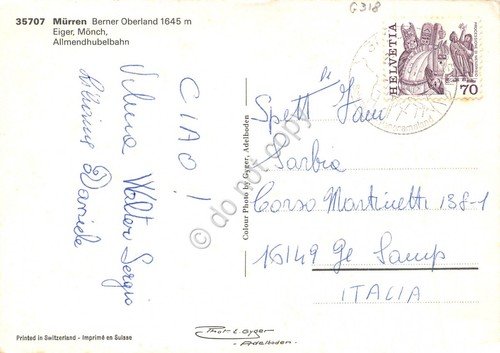 35707 Mürren Berner Oberland 1645 m
Eiger, Mönch,
Allmendhubelbahn
G318
HELVETIA
70
CIAO!
Vilma Walter Sergio
Daniele
do not copy
Colour Photo by Gyger, Adelboden
Spett.le Fam
Sarbia
Corso Martinetti 138-1
16149 Ge Samp
ITALIA
Phot. E. Gyger
Adelboden
Printed in Switzerland - Imprimé en Suisse